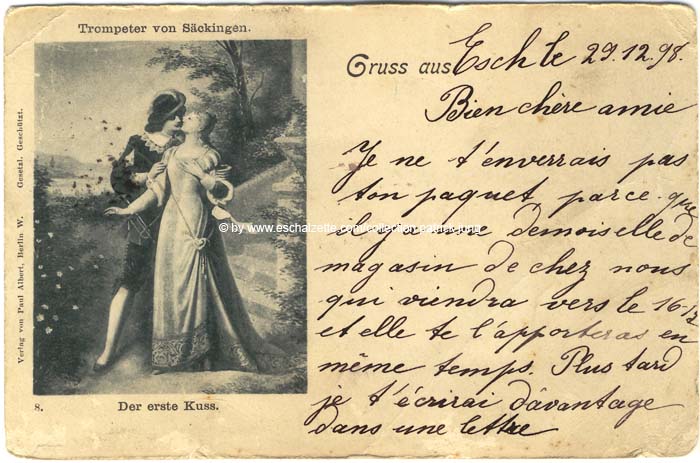 Trompeter von Säckingen.
Verlag von Paul Albert, Berlin W. Gesetzl. Geschützt.
8. Der erste Kuss.
© by www.eschalzette.com/collection
Gruss aus Esch le 29.12.98.
Bien chère amie
Je ne t'enverrais pas
ton paquet, parce que
il y a une demoiselle de
magasin de chez nous
qui viendra vers le 16 1/2
et elle te l'apporteras en
même temps. Plus tard
je t'écrirai d'avantage
dans une lettre